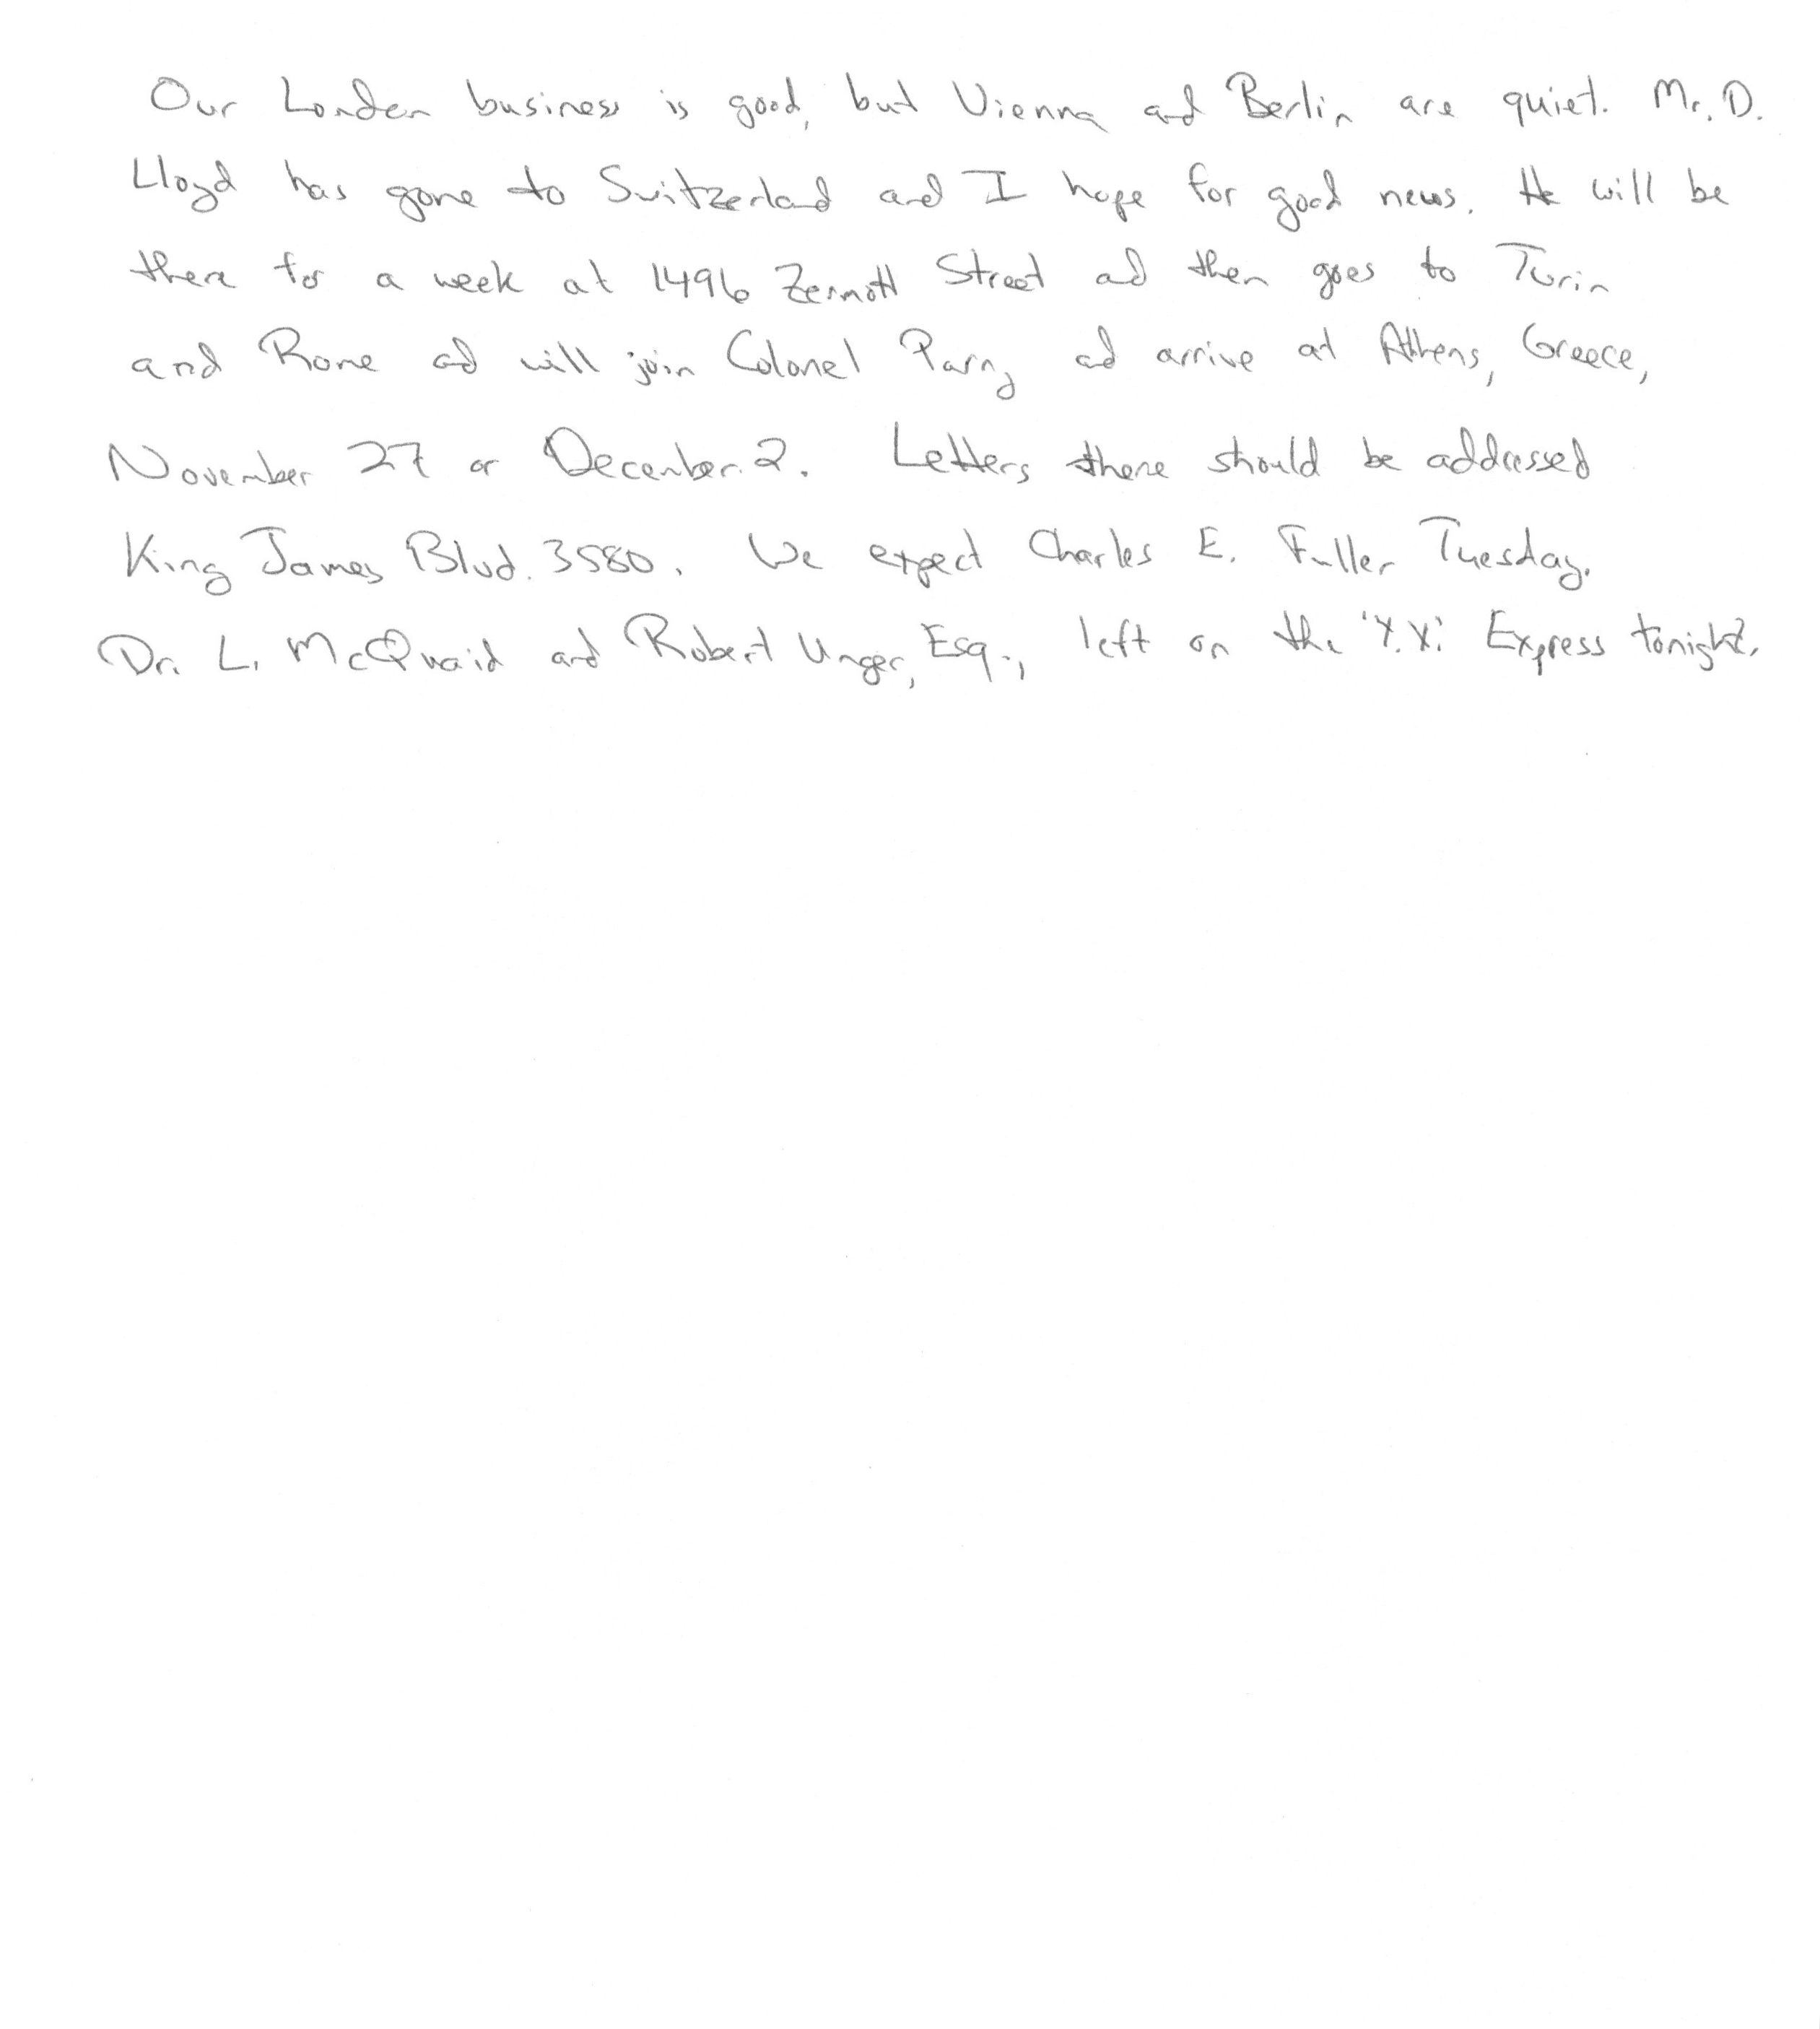 Our London business is good, but Vienna and Berlin are quiet. Mr. D.
Lloyd has gone to Switzerland and I hope for good news. He will be
there for a week at 1496 Zermott Street and then goes to Turin
and Rome and will join Colonel Parry and arrive at Athens, Greece,
November 27 or December 2. Letters there should be addressed
King James Blvd. 3580. We expect Charles E. Fuller Tuesday.
Dr. L. McQuaid and Robert Unger, Esq., left on the 'Y.X.' Express tonight.